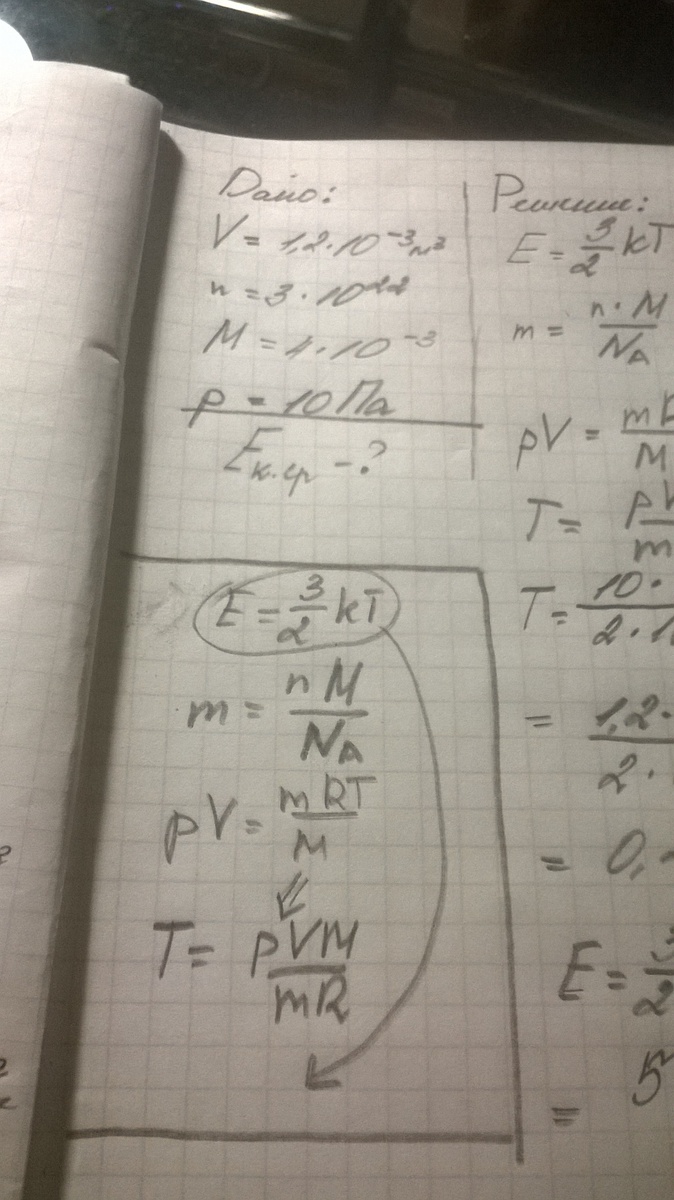 Дано:
V = 1,2·10⁻³м³
n = 3·10²²
M = 4·10⁻³
p = 10 Па
Eк.ср - ?
Решение:
E = 3/2 kT
m = n·M/N_A
pV = m
M
T = p
m
T = 10·
2·1
= 1,2·
2·
= 0,
E = 3/2
= 5
E = 3/2 kT
m = nM/N_A
pV = mRT/M
T = pVM/mR